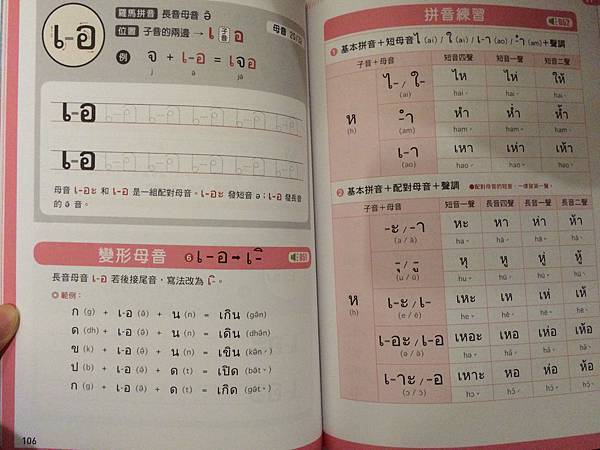 เ-อ
羅馬拼音 長音母音 ə̄
位置 子音的兩邊 → เ 子音 อ
母音 20/32
例 จ + เ-อ = เจอ
เ-อ
เ-อ
母音 เ-อะ 和 เ-อ 是一組配對母音。เ-อะ 發短音 ə；เ-อ 發長音
的 ə̄ 音。
變形母音 ❻ เ-อ ➡ เ-ิ 051
長音母音 เ-อ 若後接尾音，寫法改為 เ-ิ。
◎ 範例：
ก (g) + เ-อ (ə̄) + น (n) = เกิน (gə̄n)
ด (dh) + เ-อ (ə̄) + น (n) = เดิน (dhə̄n)
ข (k) + เ-อ (ə̄) + น (n) = เขิน
ป (b) + เ-อ (ə̄) + ด (t) = เปิด
ก (g) + เ-อ (ə̄) + ด (t) = เกิด
106
拼音練習 052
❶ 基本拼音＋短母音 ไ (ai) / ใ (ai) / เ-า (ao) / -ำ (am)＋聲調
子音＋母音 短音四聲 短音一聲 短音二聲
ห (h)
ไ- / ใ- (ai) ไห ไห่ ให้
-ำ (am) หำ ห่ำ ห้ำ
เ-า (ao) เหา เห่า เห้า
❷ 基本拼音＋配對母音＋聲調 ●配對母音的短音，一律發第一聲。
子音＋母音 短音一聲 長音四聲 長音一聲 長音二聲
ห (h)
-ะ / -า (a / ā) หะ หา ห่า ห้า
-ุ / -ู (u / ū) หุ หู หู่ หู้
เ-ะ / เ- (e / ē) เหะ เห เห่ เห้
เ-อะ / เ-อ (ə / ə̄) เหอะ เหอ เห่อ เห้อ
เ-าะ / -อ (ɔ / ɔ̄) เหาะ หอ ห่อ ห้อ